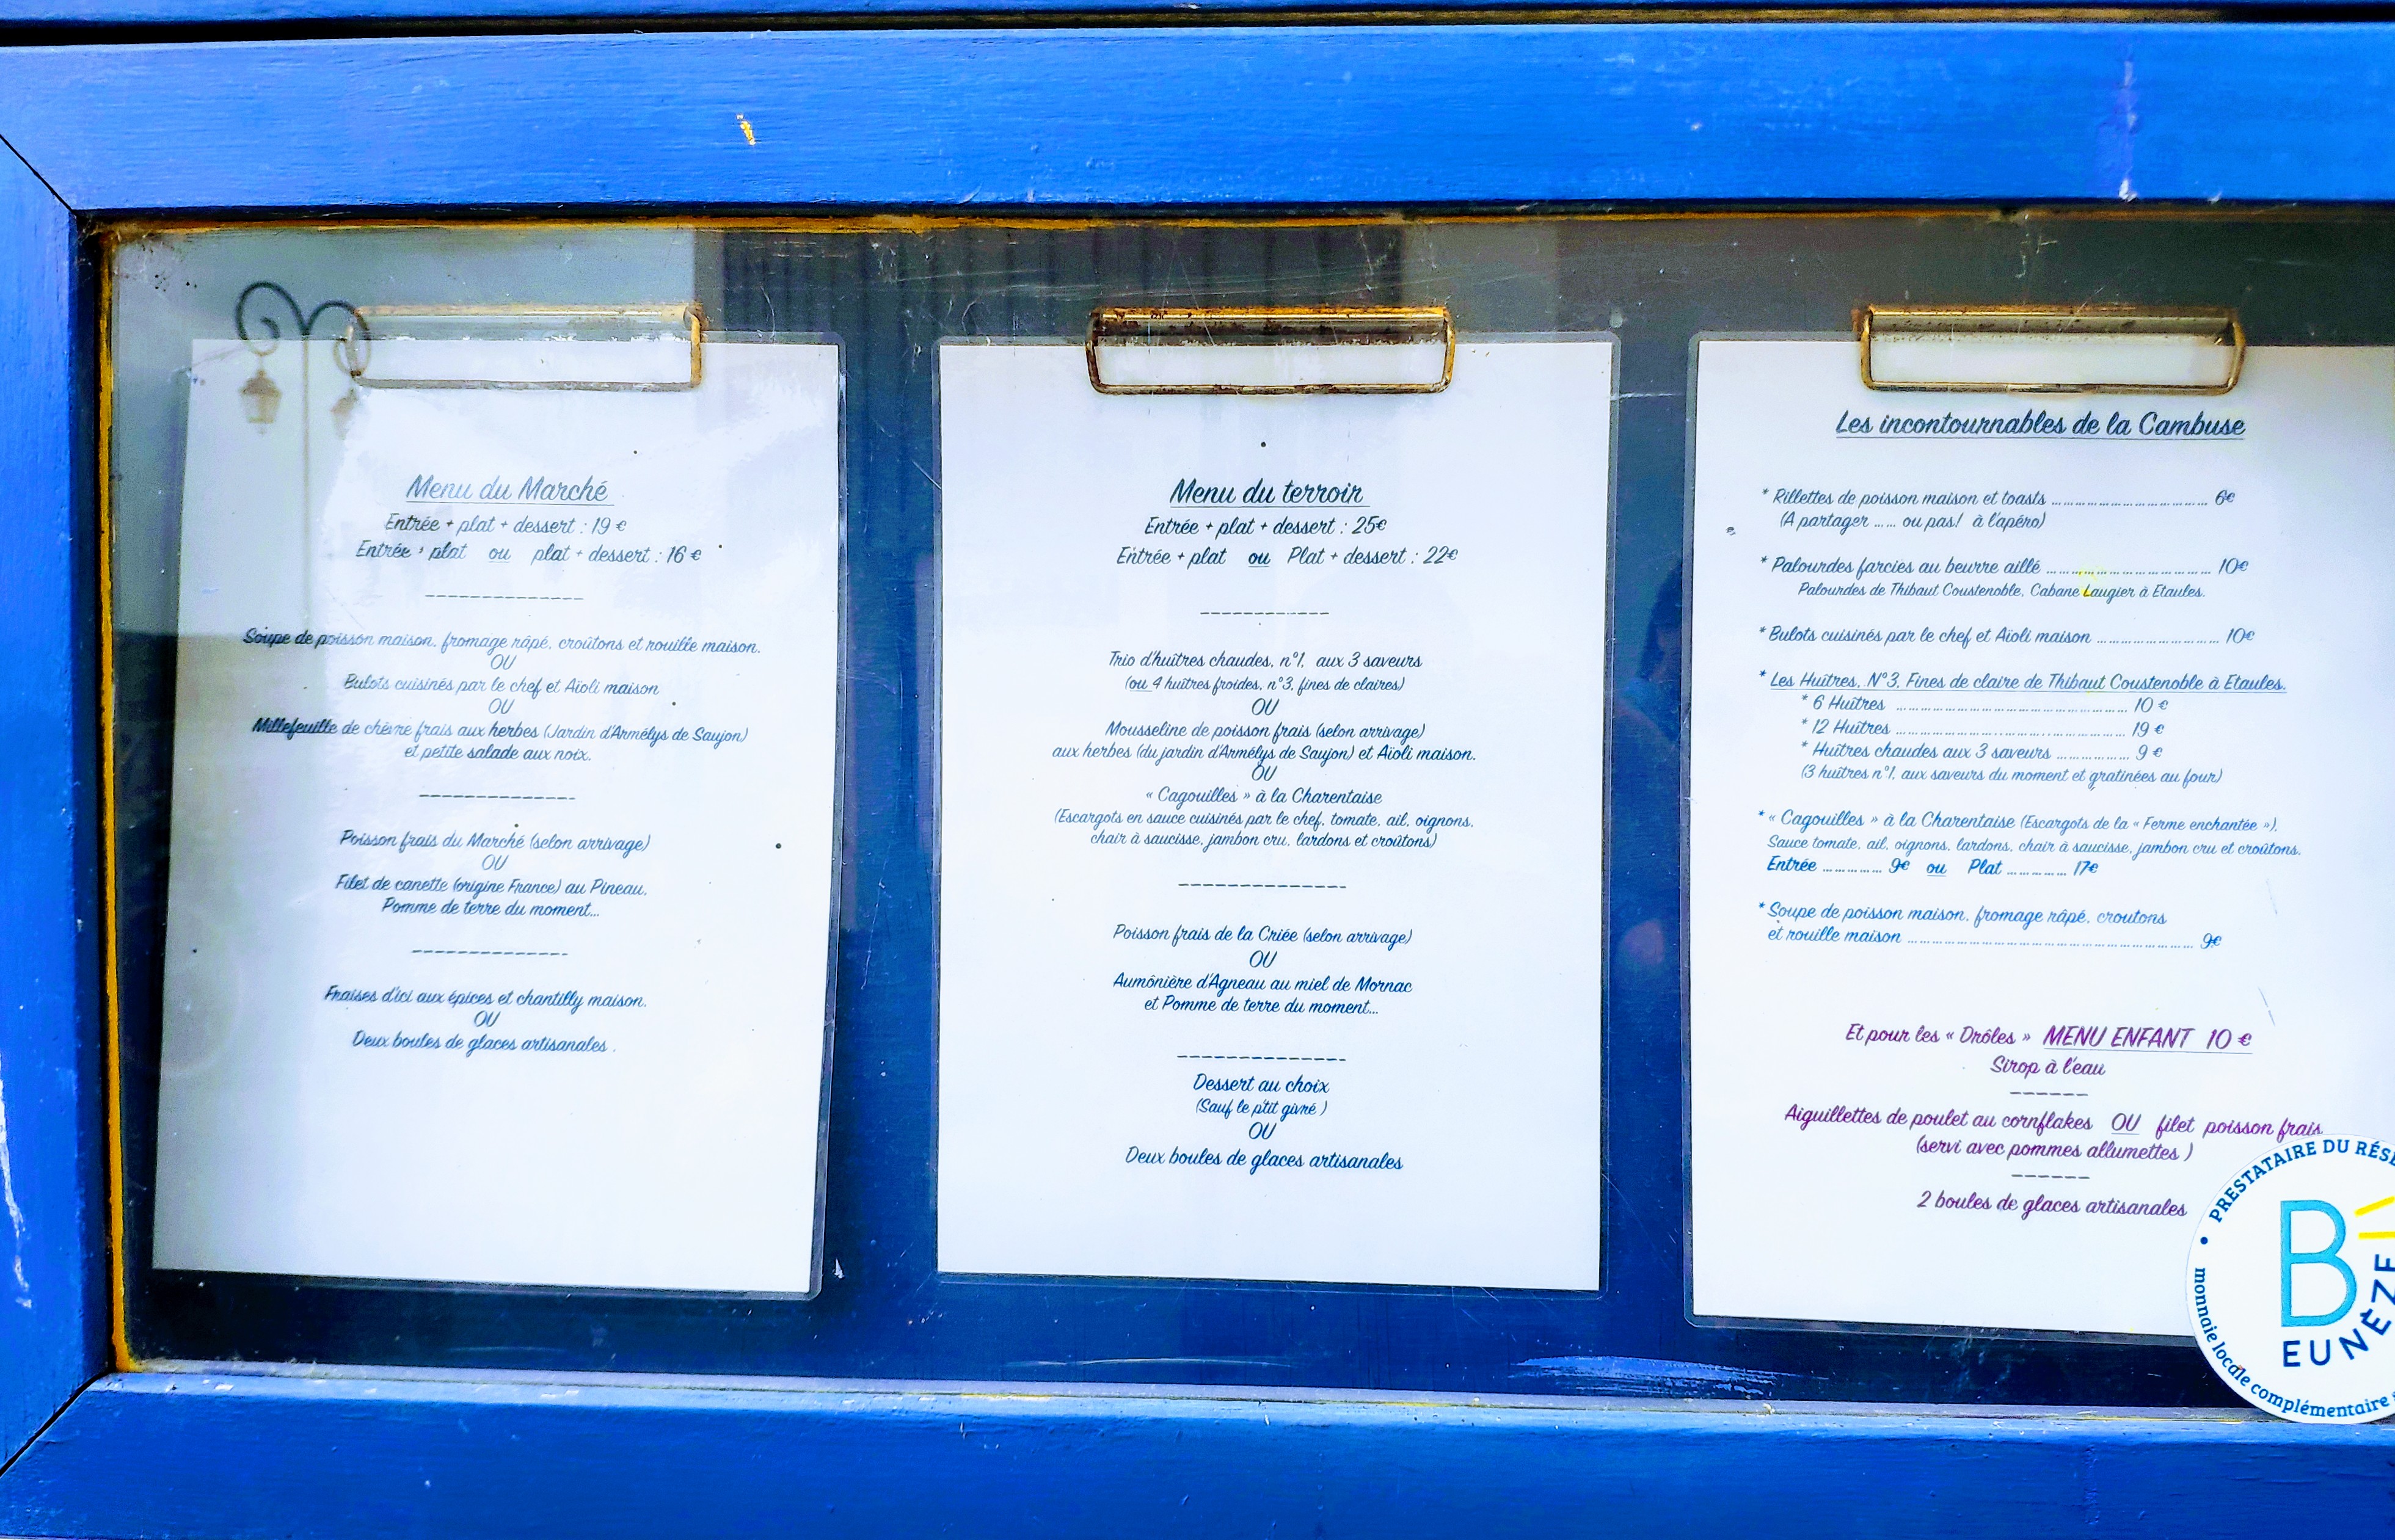 Menu du Marché
Entrée + plat + dessert : 19 €
Entrée + plat ou plat + dessert : 16 €
--------------
Soupe de poisson maison, fromage râpé, croûtons et rouille maison.
OU
Bulots cuisinés par le chef et Aïoli maison
OU
Millefeuille de chèvre frais aux herbes (Jardin d'Armélys de Saujon)
et petite salade aux noix.
--------------
Poisson frais du Marché (selon arrivage)
OU
Filet de canette (origine France) au Pineau,
Pomme de terre du moment...
--------------
Fraises d'ici aux épices et chantilly maison.
OU
Deux boules de glaces artisanales .
Menu du terroir
Entrée + plat + dessert : 25€
Entrée + plat ou Plat + dessert : 22€
------------
Trio d'huîtres chaudes, n°1, aux 3 saveurs
(ou 4 huîtres froides, n°3, fines de claires)
OU
Mousseline de poisson frais (selon arrivage)
aux herbes (du jardin d'Armélys de Saujon) et Aïoli maison.
OU
« Cagouilles » à la Charentaise
(Escargots en sauce cuisinés par le chef, tomate, ail, oignons,
chair à saucisse, jambon cru, lardons et croûtons)
---------------
Poisson frais de la Criée (selon arrivage)
OU
Aumônière d'Agneau au miel de Mornac
et Pomme de terre du moment...
---------------
Dessert au choix
(Sauf le p'tit givré )
OU
Deux boules de glaces artisanales
Les incontournables de la Cambuse
* Rillettes de poisson maison et toasts ........................................ 6€
(A partager ...... ou pas! à l'apéro)
* Palourdes farcies au beurre aillé .......................................... 10€
Palourdes de Thibaut Coustenoble, Cabane Laugier à Etaules.
* Bulots cuisinés par le chef et Aïoli maison ............................... 10€
* Les Huîtres, N°3, Fines de claire de Thibaut Coustenoble à Etaules.
* 6 Huîtres ............................................................ 10 €
* 12 Huîtres ............................................................ 19 €
* Huîtres chaudes aux 3 saveurs ................... 9 €
(3 huîtres n°1, aux saveurs du moment et gratinées au four)
* « Cagouilles » à la Charentaise (Escargots de la « Ferme enchantée »),
Sauce tomate, ail, oignons, lardons, chair à saucisse, jambon cru et croûtons.
Entrée ............... 9€ ou Plat ............... 17€
* Soupe de poisson maison, fromage râpé, croutons
et rouille maison ......................................................................... 9€
Et pour les « Drôles » MENU ENFANT 10 €
Sirop à l'eau
------
Aiguillettes de poulet au cornflakes OU filet poisson frais
(servi avec pommes allumettes )
------
2 boules de glaces artisanales
• PRESTATAIRE DU
BEUNÈZE
monnaie locale complémentaire